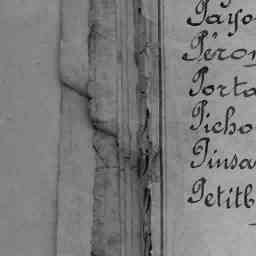 Payo
Péron
Porta
Picho
Pinsa
Petitb